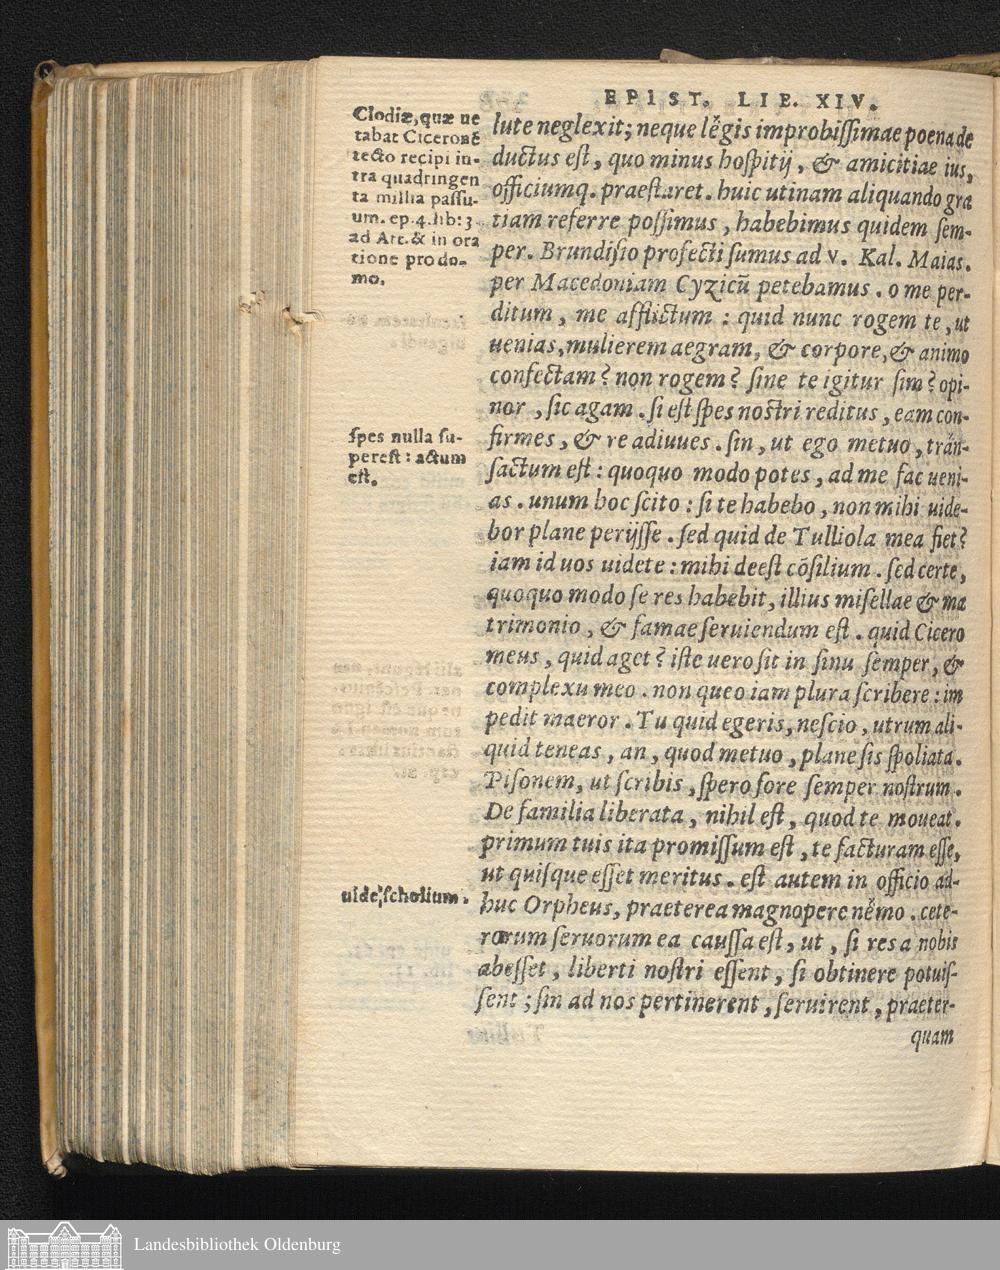 EPIST. LIE. XIV.
Clodiæ, quæ ue
tabat Ciceronẽ
tecto recipi in-
tra quadringen
ta millia passu-
um. ep. 4. lib: 3
ad Att. & in ora
tione pro do-
mo.
lute neglexit; neque lẽgis improbissimae poena de
ductus est, quo minus hospitij, & amicitiae ius,
officiumq. praestaret. huic utinam aliquando gra
tiam referre possimus, habebimus quidem sem-
per. Brundisio profecti sumus ad v. Kal. Maias.
per Macedoniam Cyzicũ petebamus. o me per-
ditum, me afflictum : quid nunc rogem te, ut
uenias, mulierem aegram, & corpore, & animo
confectam? non rogem? sine te igitur sim? opi-
nor, sic agam. si est spes nostri reditus, eam con-
firmes, & re adiuues. sin, ut ego metuo, trãn-
spes nulla su-
perest: actum
est.
sactum est: quoquo modo potes, ad me fac ueni-
as. unum hoc scito: si te habebo, non mihi uide-
bor plane perijsse. sed quid de Tulliola mea fiet?
iam id uos uidete: mihi deest cõsilium. sed certe,
quoquo modo se res habebit, illius misellae & ma
trimonio, & famae seruiendum est. quid Cicero
meus, quid aget? iste uero sit in sinu semper, &
complexu meo. non queo iam plura scribere: im
pedit maeror. Tu quid egeris, nescio, utrum ali-
quid teneas, an, quod metuo, plane sis spoliata.
Pisonem, ut scribis, spero fore semper nostrum.
De familia liberata, nihil est, quod te moueat.
primum tuis ita promissum est, te facturam esse,
ut quisque esset meritus. est autem in officio ad-
uide scholium.
huc Orpheus, praeterea magnopere nẽmo. cete-
rorum seruorum ea caussa est, ut, si res a nobis
abesset, liberti nostri essent, si obtinere potuis-
sent; sin ad nos pertinerent, seruirent, praeter-
quam
Landesbibliothek Oldenburg